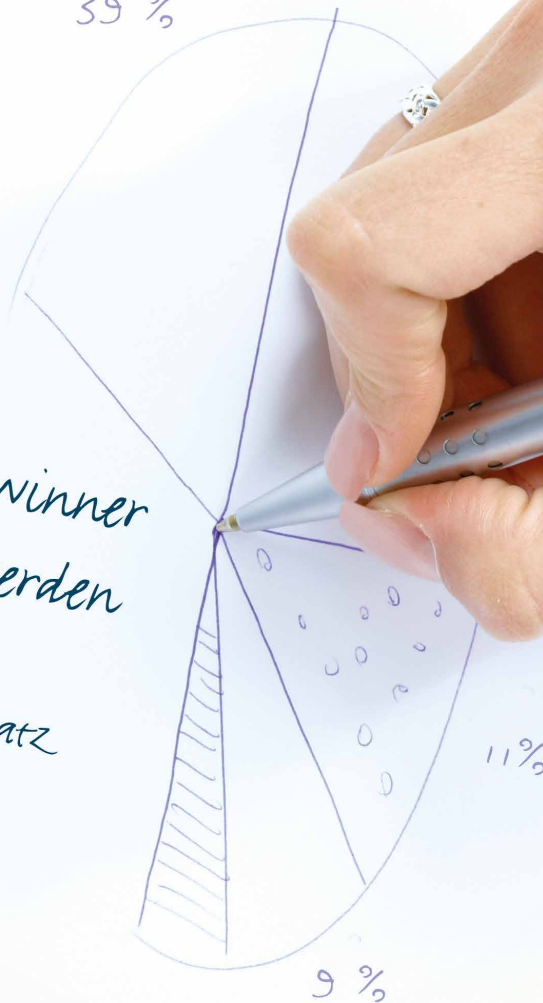 39 %
winner
erden
atz
11%
9 %